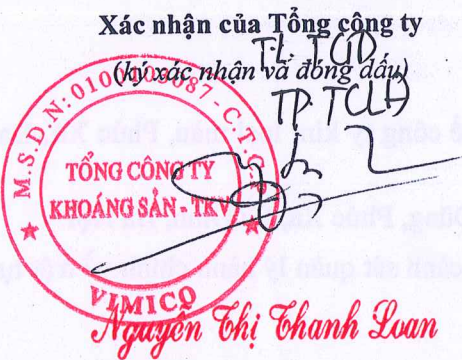 Xác nhận của Tổng công ty
(ký xác nhận và đóng dấu)
TL. TGĐ
TP. TCLĐ
M.S.D.N: 0100103087 - C.T.C.P
TỔNG CÔNG TY
KHOÁNG SẢN - TKV
VIMICO
Nguyễn Thị Thanh Loan